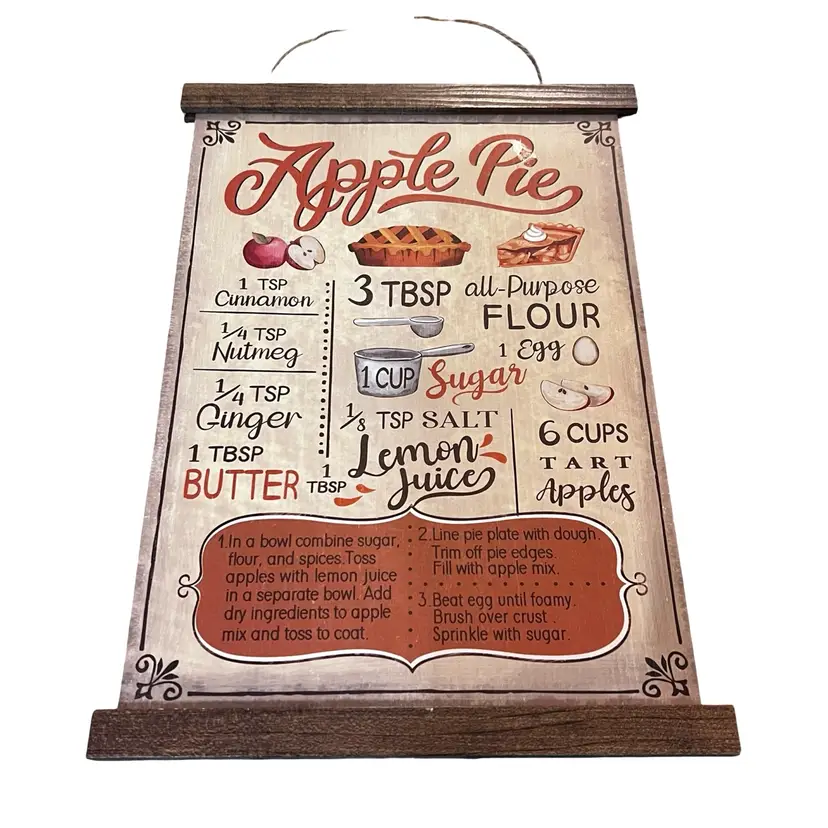 Apple Pie
1 TSP
Cinnamon
1/4 TSP
Nutmeg
1/4 TSP
Ginger
1 TBSP
BUTTER
3 TBSP all-Purpose
FLOUR
1 Egg
1 CUP Sugar
1/8 TSP SALT
1 TBSP Lemon Juice
6 CUPS
TART
Apples
1.In a bowl combine sugar,
flour, and spices.Toss
apples with lemon juice
in a separate bowl. Add
dry ingredients to apple
mix and toss to coat.
2.Line pie plate with dough.
Trim off pie edges.
Fill with apple mix.
3.Beat egg until foamy.
Brush over crust .
Sprinkle with sugar.